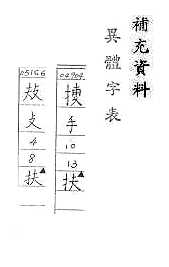 補充資料
異體字表
04904
手
10
13
扶▲
05166
攴
4
8
扶▲